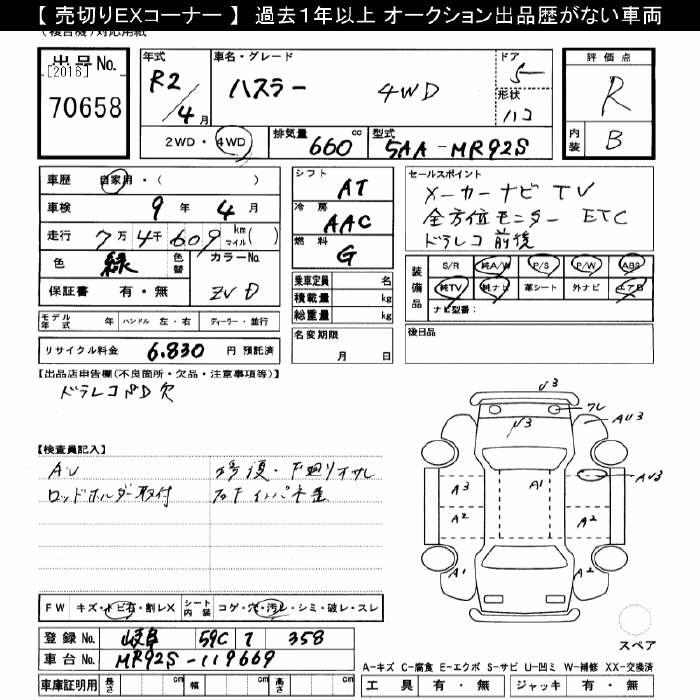 【 売切りEXコーナー 】 過去1年以上 オークション出品歴がない車両
(複合機)対応用紙
出品No. [2016] 70658
年式 R2/4月
車名・グレード ハスラー 4WD
ドア 5
形状 ハコ
評価点 R
内装 B
2WD・4WD 排気量 660 cc 型式 5AA-MR92S
車歴 自家用・( )
車検 9年 4月
走行 7万 4千 609 km マイル( )
色 緑 色替 カラーNo. ZVD
保証書 有・無
シフト AT
冷房 AAC
燃料 G
乗車定員 名
積載量 kg
総重量 kg
セールスポイント
メーカーナビ TV
全方位モニター ETC
ドラレコ前後
装備品 S/R 純A/W P/S P/W ABS
純TV 純ナビ 革シート 外ナビ エアB
ナビ型番:
モデル年式 年 ハンドル 左・右 ディーラー・並行
名変期限 月 日
後日品
リサイクル料金 6,830 円 預託済
【出品店申告欄(不良箇所・欠品・注意事項等)】
ドラレコSD欠
【検査員記入】
AU 修復・下廻りサビ
ロッドホルダー取付
V3
V3
フレ
AU3
AU3
A3
A1
A2
A2
A1
A2
FW キズ・トビ石・割レX シート内装 コゲ・穴・汚レ・シミ・破レ・スレ
登録No. 岐阜 59C 7 358
車台No. MR92S-119669
スペア
A-キズ C-腐食 E-エクボ S-サビ U-凹ミ W-補修 XX-交換済
車庫証明用 長さ cm 幅 cm 高さ cm
工具 有・無 ジャッキ 有・無